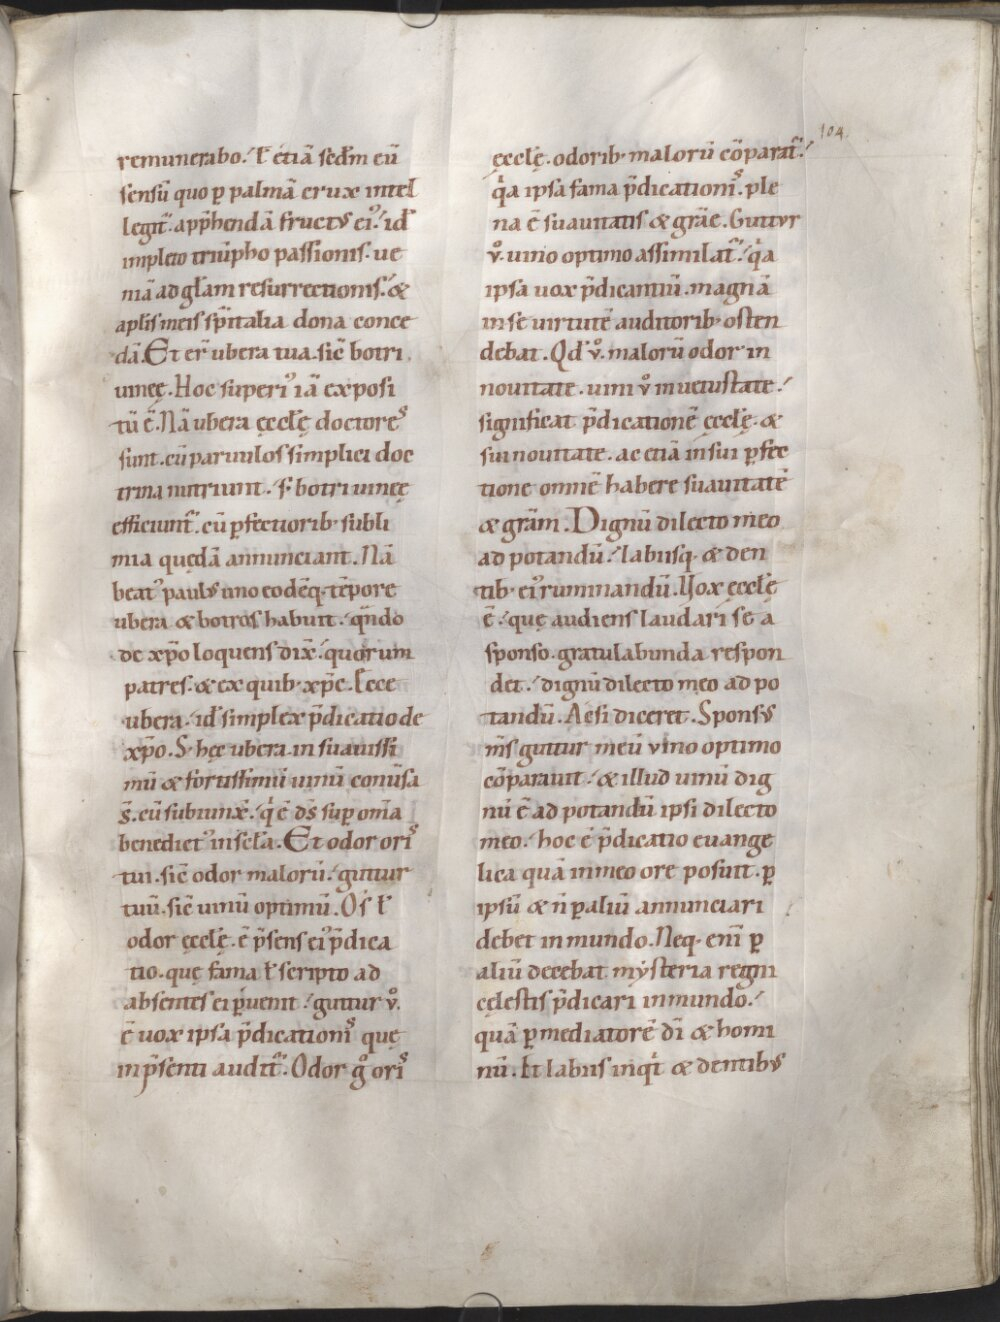 104.
remunerabo. ł etiā sedm̄ eū
sensū quo ꝑ palmā crux intel
legit᷑. app̄hendā fructꝰ eiꝰ. id ̄
impleto triūpho passionis. ue
niā ad głam resurrectionis. &
aplis meis sp̄italia dona conce
dā. Et er̄ ubera tua. sic̄ botri
uineę. Hoc superiꝰ iā exposi
tū ē. Nā ubera ęcclę̄ doctores
sunt. cū paruulos simplici doc
trina nutriunt. s; botri uineę
efficiunt᷑. cū ꝑfectiorib· subli
mia quędā annunciant. Nā
beatꝰ paulꝰ uno eodēq· tēpore
ubera & botros habuit. qn̄do
de xp̄o loquens dix̄. quorum
patres. & ex quib· xp̄c. Ecce
ubera. id ̄ simplex p̄dicatio de
xp̄o. S; hęc ubera in suauissi
mū & fortissimū uinū conūsa
s̄. cū subiunx̄. qi ē ds̄ suꝑ om̄a
benedictꝰ in sc̄la. Et odor oris
tui. sic̄ odor malorū. guttur
tuū. sic̄ uinū optimū. Os ł
odor ęcclę̄. ē p̄sens eiꝰ p̄dica
tio. quę fama ł scripto ad
absentes ei ꝑuenit. guttur v̊.
ē uox ipsa p̄dicationis quę
in p̄senti audit᷑. Odor g̊ oris
ęcclę̄. odorib· malorū cōparat᷑.
qa ipsa fama p̄dicationis. ple
na ē suauitatis & grāe. Guttur
v̊. uino optimo assimilat᷑. qa
ipsa uox p̄dicantiū. magnā
in se uirtutē auditorib· osten
debat. Qd ̄ v̊. malorū odor in
nouitate. uini v̊ in uetustate.
significat p̄dicationē ęcclę̄. &
sui nouitate. ac etiā in sui ꝑfec
tione omnē habere suauitatē
& grām. Dignū dilecto meo
ad potandū. labiisq· & den
tib· eiꝰ ruminandū. Uox ęcclę̄
ē. quę audiens laudari se a
sponso. gratulabunda respon
det. dignū dilecto meo ad po
tandū. Ac si diceret. Sponsꝰ
m̄s guttur meū vino optimo
cōparauit. & illud uinū dig
nū ē ad potandū ipsi dilecto
meo. hoc ē p̄dicatio euange
lica quā in meo ore posuit. ꝑ
ipsū & n̄ ꝑ aliū annunciari
debet in mundo. Neq· enī ꝑ
aliū decebat mysteria regni
cęlestis p̄dicari in mundo.
quā ꝑ mediatorē dī & homi
nū. Et labiis inqt & dentibꝰ